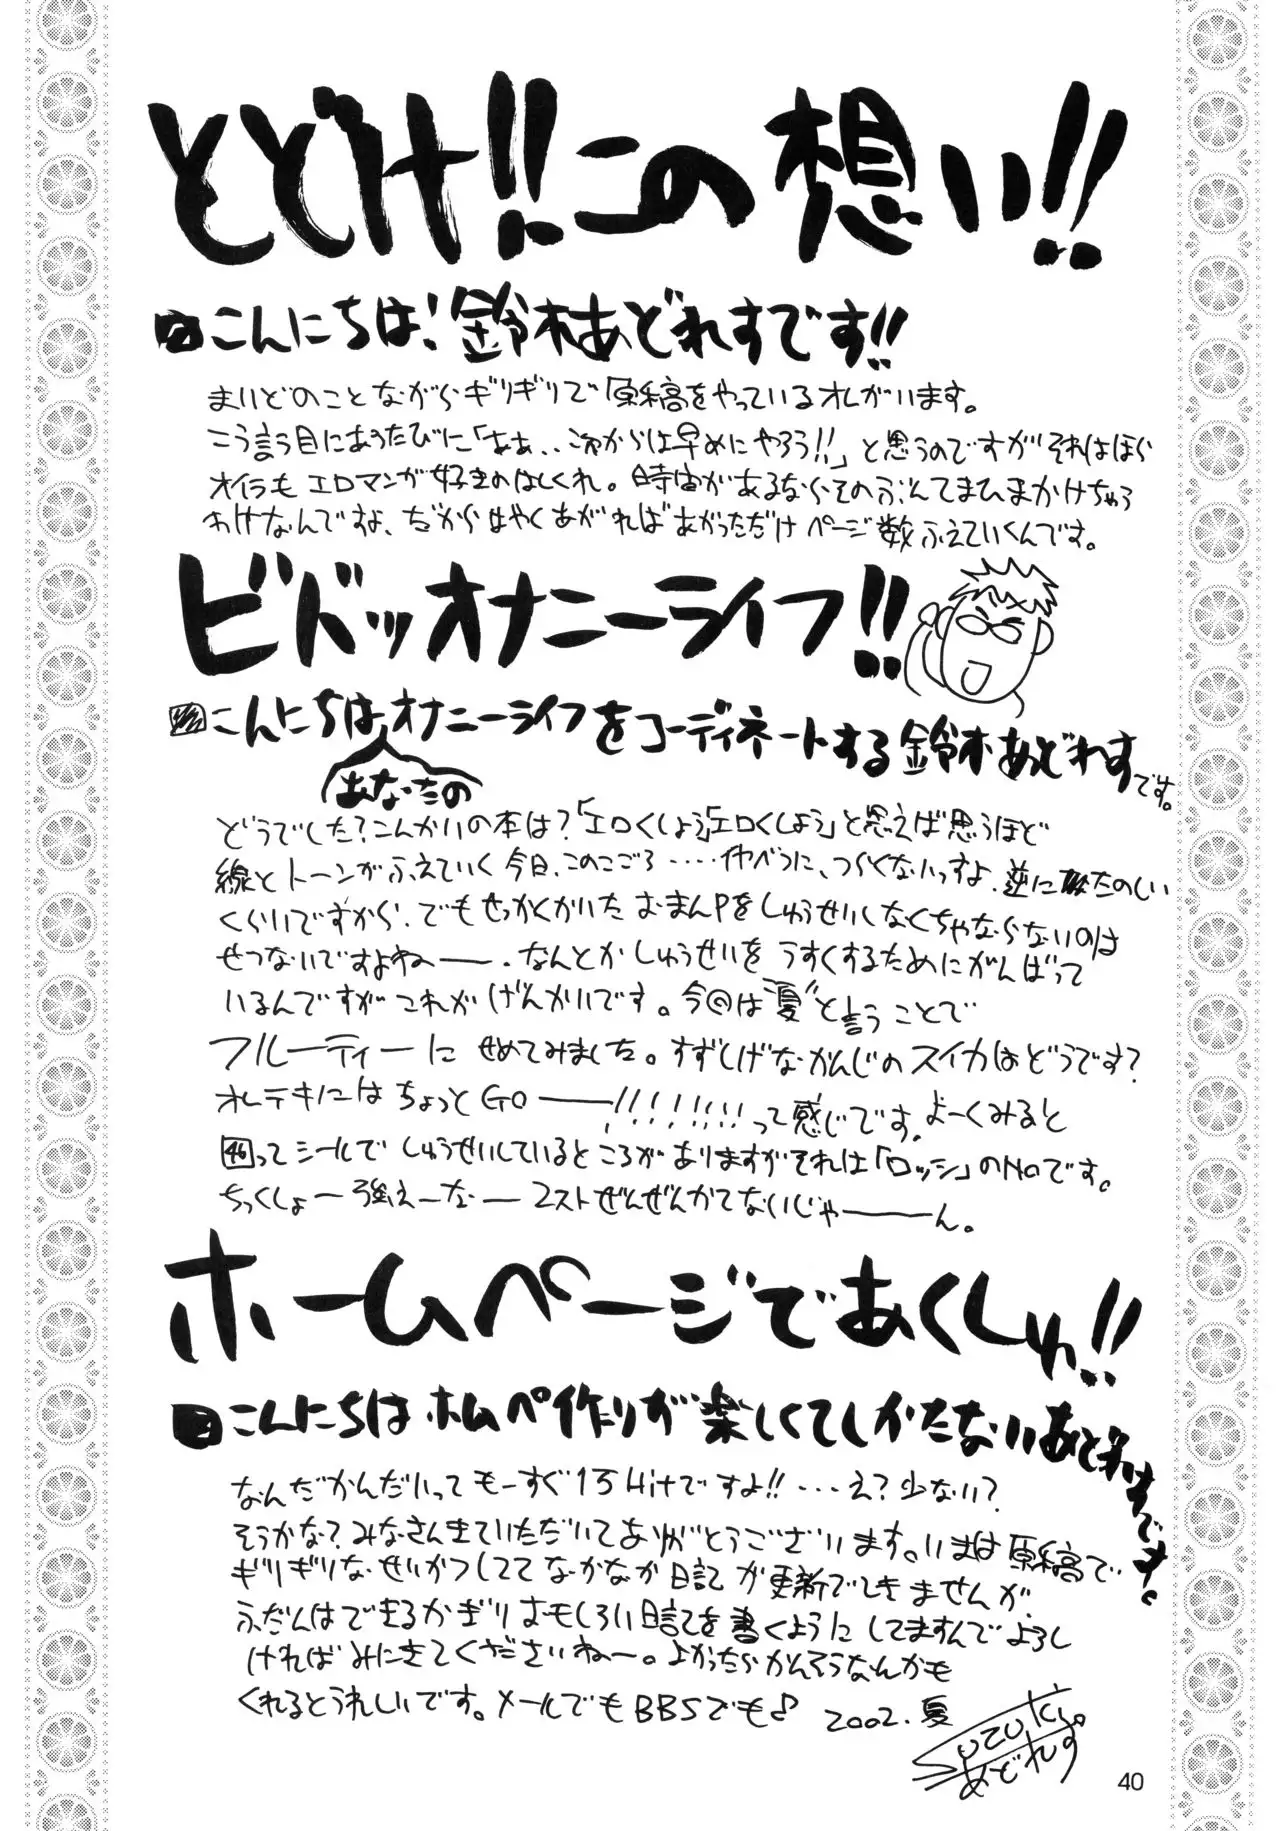 とどけ!!この想い!!
こんにちは!鈴木あどれすです!!
まいどのことながらギリギリで原稿をやっているオレがいます。
こう言う目にあうたびに「あぁ..これからは早めにやろう!!」と思うのですがそれはほら
オイラもエロマンガ好きのはしくれ。時間があるならそのぶんてまひまかけちゃう
わけなんですよ、だからはやくあがればあがっただけページ数ふえていくんです。
ビバッオナニーライフ!!
こんにちはオナニーライフをコーディネートする鈴木あどれすです。
あなたの
どうでした?こんかいの本は?「エロくしよう」「エロくしよう」と思えば思うほど
線とトーンがふえていく今日、このごろ・・・・べつに、つらくないっすよ、逆にたのしい
くらいですから、でもせっかくかいたおまんPをしゅうせいしなくちゃならないのは
せつないですよねー、なんとかしゅうせいをうすくするためにがんばって
いるんですがこれがげんかいです。今回は"夏"と言うことで
フルーティーにせめてみました。すずしげなかんじのスイカはどうです?
オレテキにはちょっとGOー!!!!!!!!って感じです。よーくみると
46ってシールでしゅうせいしているところがありますがそれは「ロッシ」のNoです。
ちっくしょー強えーなー2ストぜんぜんかてないじゃーん。
ホームページであくしゅ!!
こんにちはホムペ作りが楽しくてしかたないあどれすです。
なんだかんだいってもーすぐ1万Hitですよ!!・・・え?少ない?
そうかな?みなさんきていただいてありがとうございます。いまは原稿で
ギリギリなせいかつしててなかなか日記が更新できませんが
ふだんはできるかぎりおもしろい日記を書くようにしてますんでよろし
ければみにきてくださいねー。よかったらかんそうなんかも
くれるとうれしいです。メールでもBBSでも♪ 2002.夏
Suzuki
あどれす
40